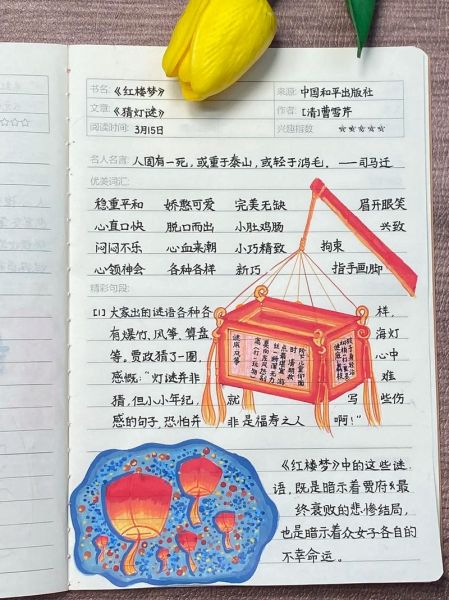 书名: 《红楼梦》 来源: 中国和平出版社
文章: 《猜灯谜》 作者: [清]曹雪芹
阅读时间: 3月15日 兴趣指数 ☆☆☆☆☆
名人名言: 人固有一死,或重于泰山,或轻于鸿毛。——司马迁
优美词汇:
稳重平和 娇憨可爱 完美无缺 眉开眼笑
心直口快 脱口而出 小肚鸡肠 兴致
闷闷不乐 心血来潮 小巧精致 拘束
心领神会 各种各样 新巧 指手画脚
精彩句段:
[1]大家出的谜语各种各样,
有爆竹、风筝、算盘 海灯
等,贾政猜了一圈, 心中
感慨:“灯谜并非 难
猜,但小小年纪, 就 写 些伤
感的句子,恐怕并 非是福寿之人 啊!”
《红楼梦》中的这些谜
语,既是暗示着贾府最
终衰败的悲惨结局,
也是暗示着众女子各自的
不幸命运。